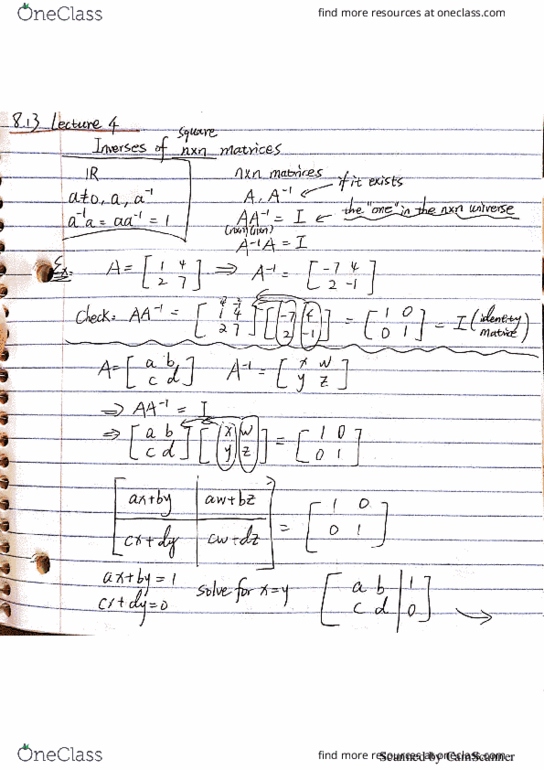 OneClass
find more resources at oneclass.com
8.13 Lecture 4
square
Inverses of nxn matrices
IR
a≠0, a, a⁻¹
a⁻¹a = aa⁻¹ = 1
nxn matrices
A, A⁻¹ ← if it exists
AA⁻¹ = I ← the "one" in the nxn universe
(nxn)(nxn)
A⁻¹A = I
Ex. A = [1 4; 2 7] ⇒ A⁻¹ = [-7 4; 2 -1]
Check: AA⁻¹ = [1 4; 2 7] [(-7; 2) (4; -1)] = [1 0; 0 1] = I (identity matrix)
A = [a b; c d] A⁻¹ = [x w; y z]
⇒ AA⁻¹ = I
⇒ [a b; c d] [(x; y) (w; z)] = [1 0; 0 1]
[ax+by | aw+bz; cx+dy | cw+dz] = [1 0; 0 1]
ax+by=1
cx+dy=0
solve for x=y
[a b | 1; c d | 0] →
OneClass
find more resources at oneclass.com
Scanned by CamScanner